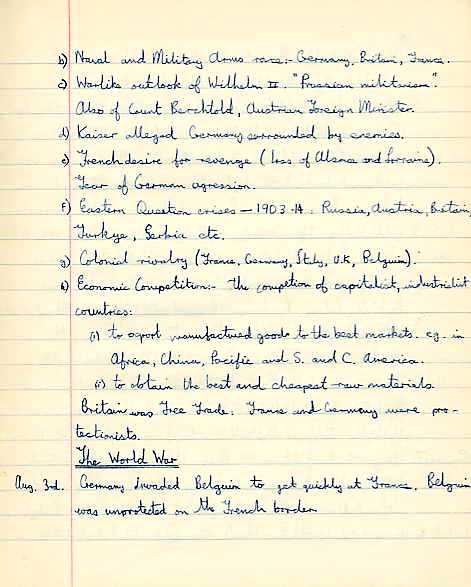 b) Naval and Military Arms race:- Germany, Britain, France.
c) Warlike outlook of Wilhelm II. "Prussian militarism".
Also of Count Berchtold, Austrian Foreign Minister.
d) Kaiser alleged Germany surrounded by enemies.
e) French desire for revenge (loss of Alsace and Lorraine).
Fear of German agression.
f) Eastern Question crises - 1903-14: Russia, Austria, Britain,
Turkye, Serbia etc.
g) Colonial rivalry (France, Germany, Italy, U.K, Belguim).
h) Economic Competition:- the compétion of capitalist, industrialist
countries:
(i) to export manufactured goods to the best markets. eg. in
Africa, China, Pacific and S. and C. America.
(ii) to obtain the best and cheapest raw materials
Britain was Free Trade. France and Germany were pro-
tectionists.
The World War
Aug. 3rd. Germany invaded Belguim to get quickly at France. Belguim
was unprotected on the French border